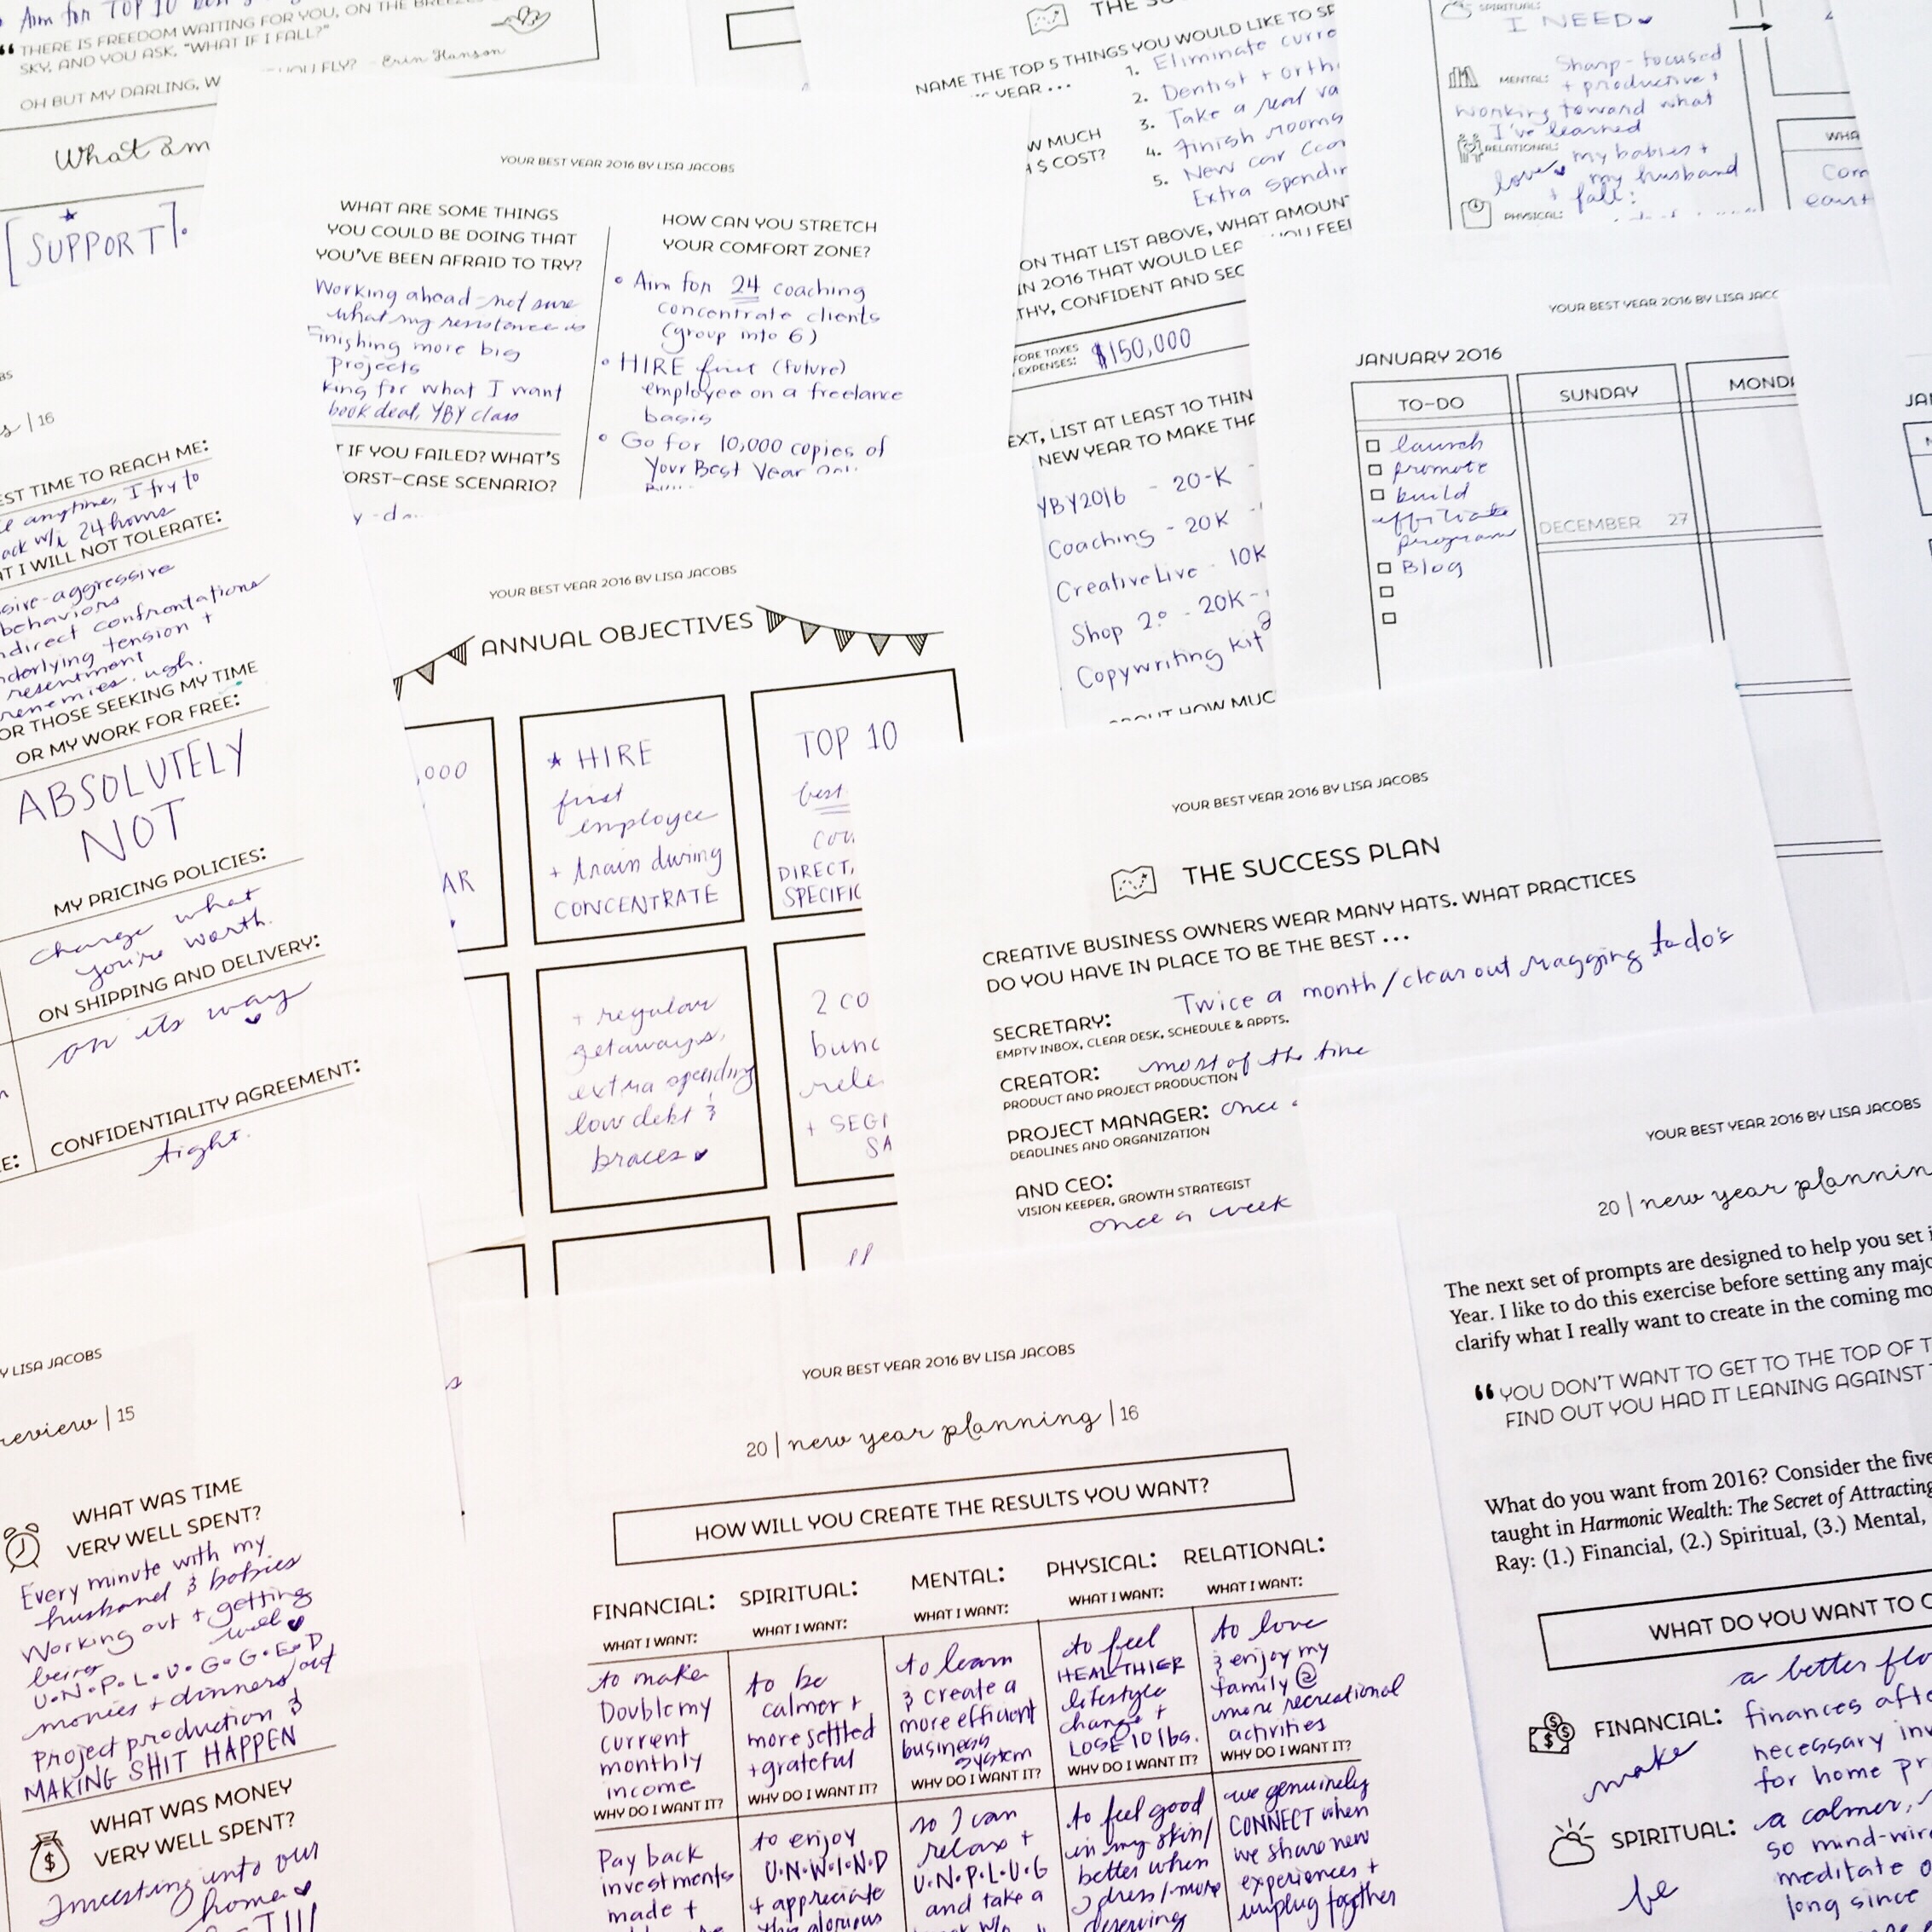 Aim for TOP 10
“ THERE IS FREEDOM WAITING FOR YOU, ON THE BREEZES
SKY, AND YOU ASK, "WHAT IF I FALL?"
OH BUT MY DARLING, W YOU FLY? - Erin Hanson
What am
[SUPPORT].
16
EST TIME TO REACH ME:
anytime, I try to
back w/i 24 hours
AT I WILL NOT TOLERATE:
sive-aggressive
behaviors
ndirect confrontations
nderlying tension +
resentment
renemies. ugh.
OR THOSE SEEKING MY TIME
OR MY WORK FOR FREE:
ABSOLUTELY
NOT
MY PRICING POLICIES:
charge what
you're worth.
ON SHIPPING AND DELIVERY:
on its way
CONFIDENTIALITY AGREEMENT:
tight.
YOUR BEST YEAR 2016 BY LISA JACOBS
WHAT ARE SOME THINGS
YOU COULD BE DOING THAT
YOU'VE BEEN AFRAID TO TRY?
Working ahead - not sure
what my resistance is
Finishing more big
projects
king for what I want
book deal, YBY class
T IF YOU FAILED? WHAT'S
ORST-CASE SCENARIO?
HOW CAN YOU STRETCH
YOUR COMFORT ZONE?
Aim for 24 coaching
concentrate clients
(group into 6)
HIRE first (future)
employee on a freelance
basis
Go for 10,000 copies of
Your Best Year
THE
NAME THE TOP 5 THINGS YOU WOULD LIKE TO SP
YEAR ...
W MUCH
$ COST?
1. Eliminate curre
2. Dentist + orth
3. Take a real va
4. Finish rooms
5. New car
Extra spendin
ON THAT LIST ABOVE, WHAT AMOUNT
IN 2016 THAT WOULD LEA YOU FEEL
THY, CONFIDENT AND SEC
FORE TAXES
EXPENSES: $150,000
EXT, LIST AT LEAST 10 THIN
NEW YEAR TO MAKE THA
YBY2016 - 20-K -
Coaching - 20K -
CreativeLive - 10K
Shop 2.0 - 20K -
Copywriting Kit
ABOUT HOW MUC
SPIRITUAL:
I NEED
MENTAL: Sharp-focused
+ productive +
working toward what
I've learned
RELATIONAL: my babies +
love my husband
+ fall:
PHYSICAL:
WHA
YOUR BEST YEAR 2016 BY LISA JAC
JANUARY 2016
TO-DO SUNDAY MONDA
launch
promote
build
affiliate
program
Blog
DECEMBER 27
YOUR BEST YEAR 2016 BY LISA JACOBS
ANNUAL OBJECTIVES
,000
AR
HIRE
first
employee
+ train during
CONCENTRATE
TOP 10
best
DIRECT,
SPECIFIC
+ regular
getaways,
extra spending
low debt &
braces
2 CO
bund
rele
+ SEGI
SA
YOUR BEST YEAR 2016 BY LISA JACOBS
THE SUCCESS PLAN
CREATIVE BUSINESS OWNERS WEAR MANY HATS. WHAT PRACTICES
DO YOU HAVE IN PLACE TO BE THE BEST ...
SECRETARY: Twice a month/clear out nagging to do's
EMPTY INBOX, CLEAR DESK, SCHEDULE & APPTS.
CREATOR: most of the time
PRODUCT AND PROJECT PRODUCTION
PROJECT MANAGER: once
DEADLINES AND ORGANIZATION
AND CEO:
VISION KEEPER, GROWTH STRATEGIST
once a week
Y LISA JACOBS
review | 15
WHAT WAS TIME
VERY WELL SPENT?
Every minute with my
husband & babies
Working out + getting
better well
U•N•P•L•U•G•G•E•D
movies + dinners out
Project production &
MAKING SHIT HAPPEN
WHAT WAS MONEY
VERY WELL SPENT?
Investing into our
home
YOUR BEST YEAR 2016 BY LISA JACOBS
20 | new year planning | 16
HOW WILL YOU CREATE THE RESULTS YOU WANT?
FINANCIAL: SPIRITUAL: MENTAL: PHYSICAL: RELATIONAL:
WHAT I WANT: WHAT I WANT: WHAT I WANT: WHAT I WANT: WHAT I WANT:
to make
Double my
current
monthly
income
WHY DO I WANT IT?
Pay back
investments
made +
to be
calmer +
more settled
+ grateful
WHY DO I WANT IT?
to enjoy
U•N•W•I•N•D
+ appreciate
this glorious
to learn
& create a
more efficient
business
system
WHY DO I WANT IT?
so I can
relax +
U•N•P•L•U•G
and take a
to feel
HEALTHIER
lifestyle
change +
LOSE 10 lbs.
WHY DO I WANT IT?
to feel good
in my skin/
better when
I dress/more
deserving
to love
& enjoy my
family @
more recreational
activities
WHY DO I WANT IT?
we genuinely
CONNECT when
we share new
experiences +
unplug together
YOUR BEST YEAR 2016 BY LISA JACOBS
20 | new year plannin
The next set of prompts are designed to help you set i
Year. I like to do this exercise before setting any majo
clarify what I really want to create in the coming mo
“ YOU DON'T WANT TO GET TO THE TOP OF T
FIND OUT YOU HAD IT LEANING AGAINST
What do you want from 2016? Consider the five
taught in Harmonic Wealth: The Secret of Attracting
Ray: (1.) Financial, (2.) Spiritual, (3.) Mental,
WHAT DO YOU WANT TO C
a better flo
FINANCIAL: finances afte
make necessary inv
for home pr
SPIRITUAL: a calmer,
so mind-wir
be meditate o
long since